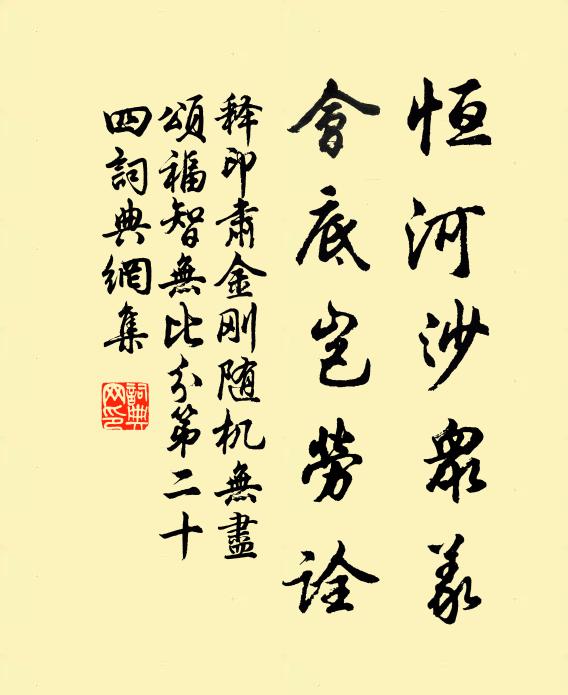 恒河沙眾義
會底豈勞詮
释印肅金剛随机無盡
頌福智無比分第二十
四詞典網集
詞典
网印